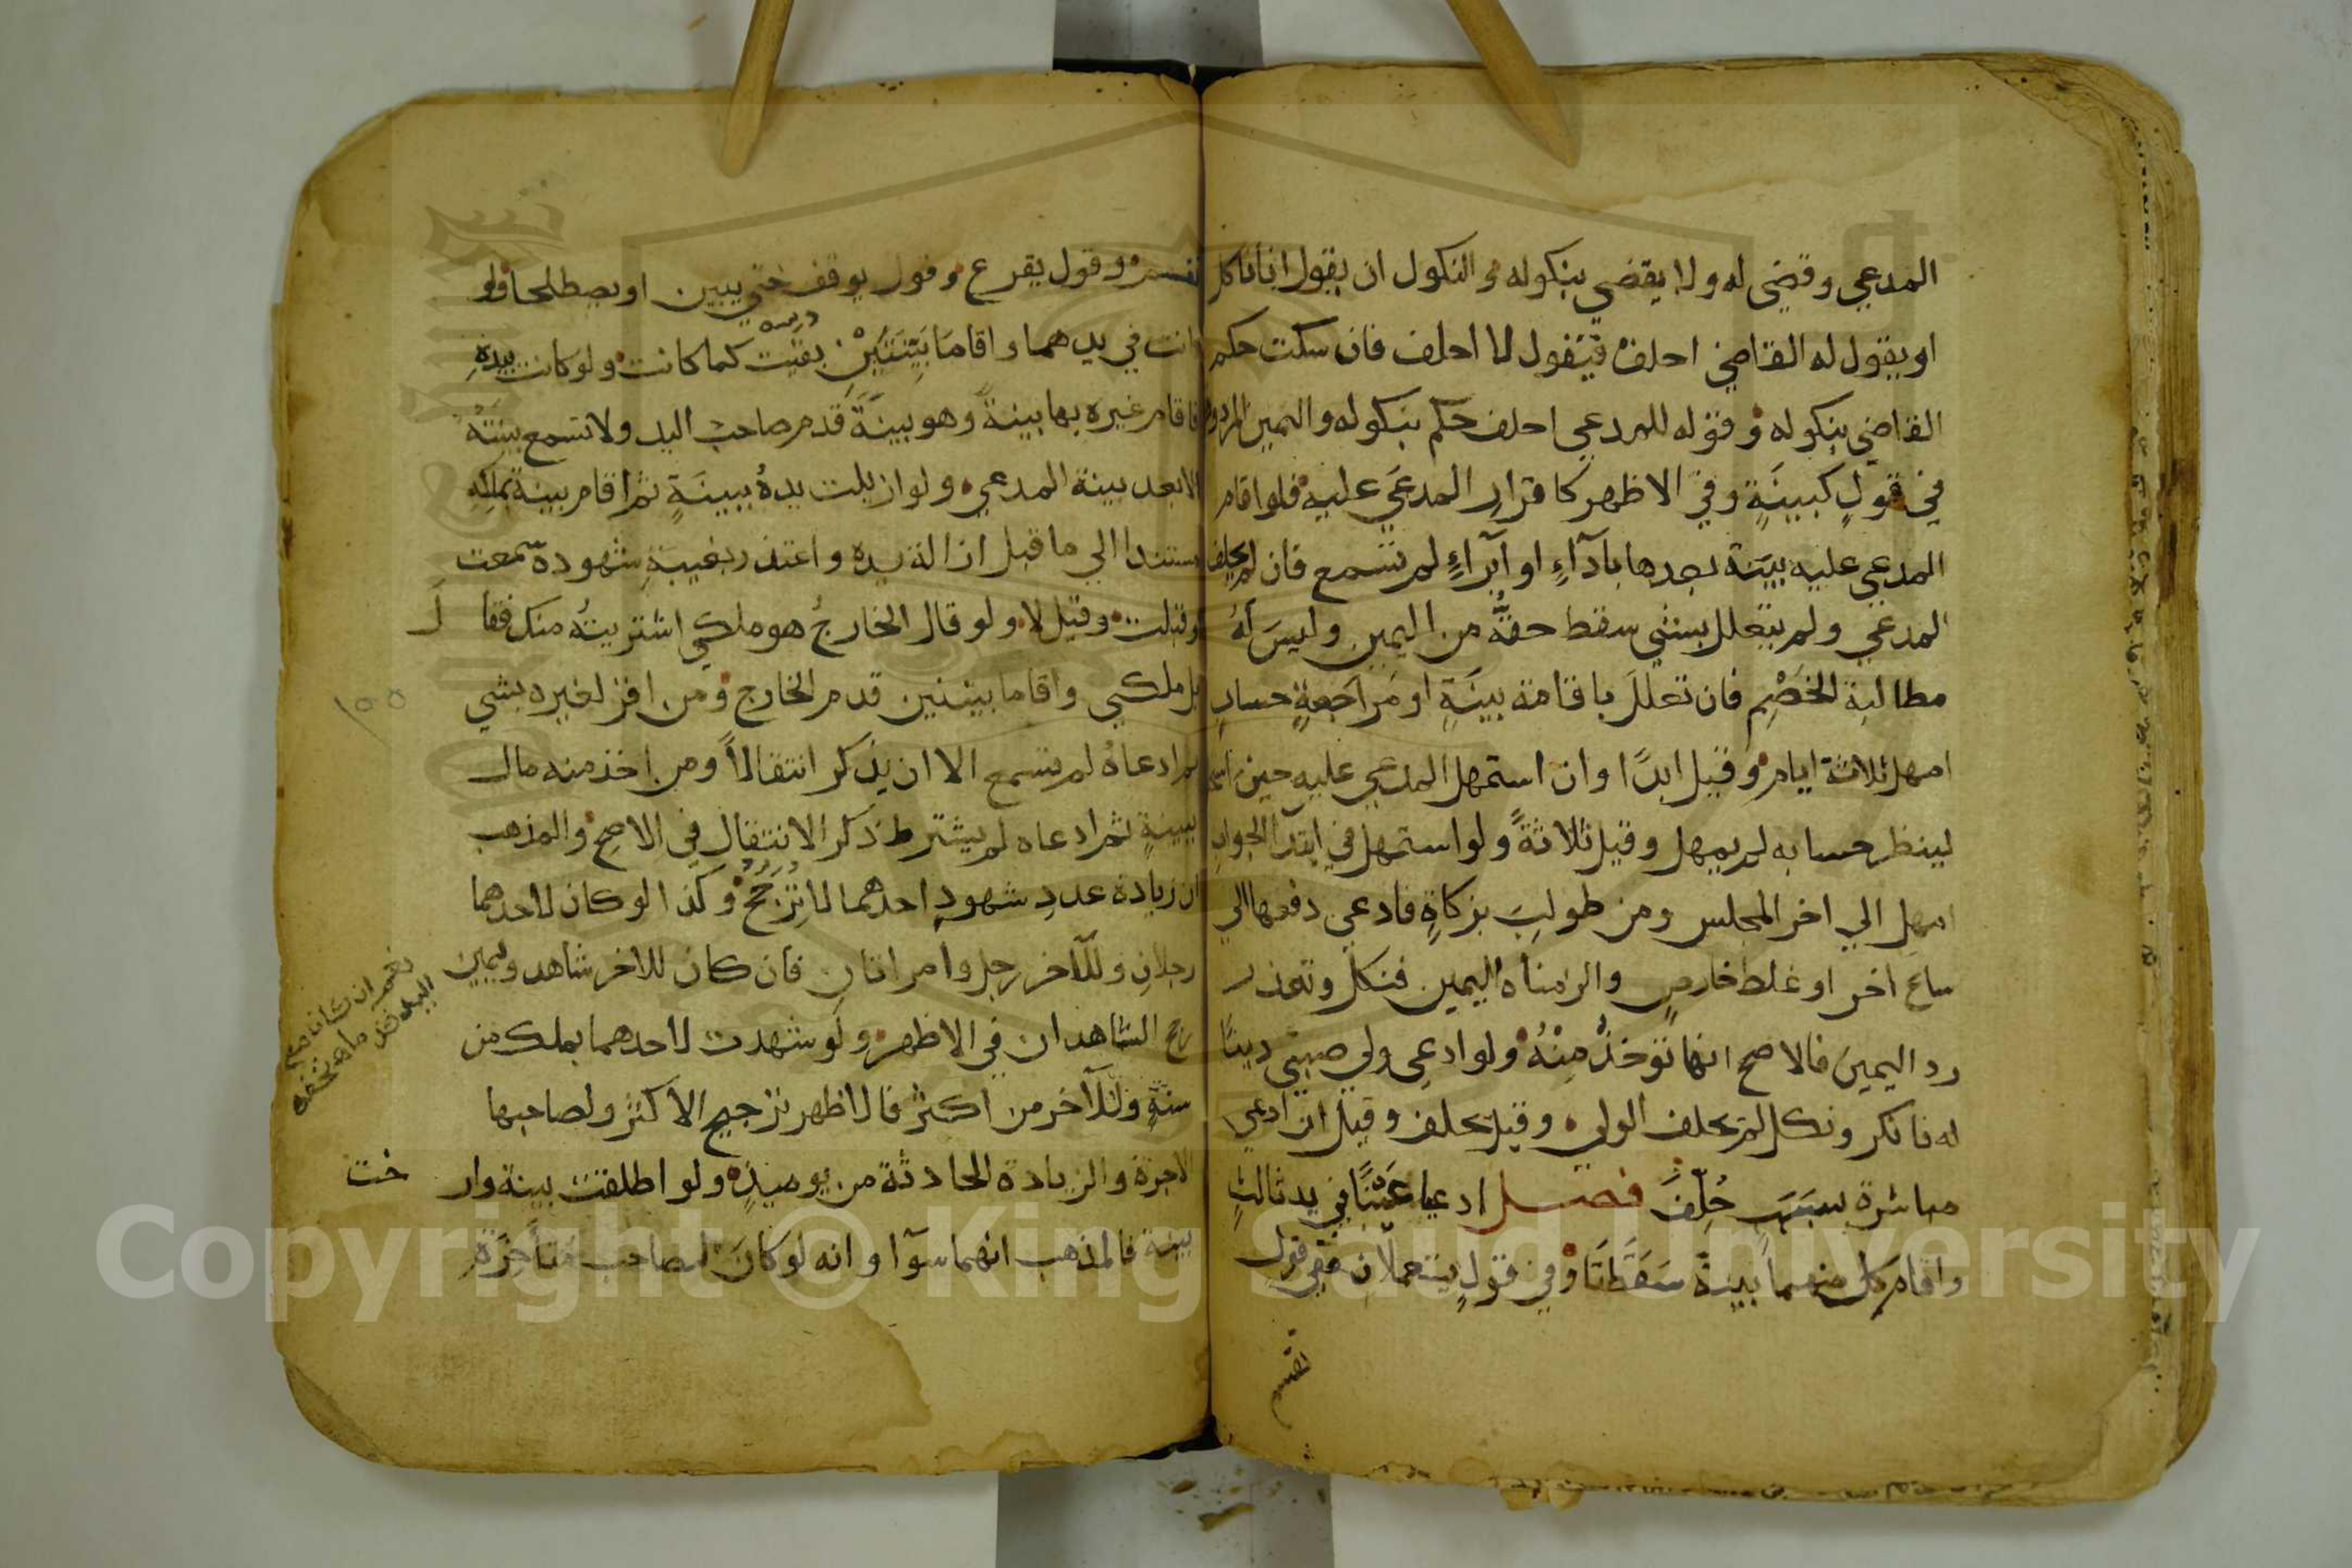 المدعي وقضي له ولا يقضي بنكوله والنكول ان يقول انا ناكل
او يقول له القاضي احلف فيقول لا احلف فان سكت حكم
القاضي بنكوله وقوله للمدعي احلف حكم بنكوله واليمين المردودة
في قولٍ كبينَةٍ وفي الاظهر كاقرارِ المدعَي عليه فلو اقام
المدعي عليه بينة بعدها باَدآءٍ او اَبْراءٍ لم تسمع فان لم يحلف
المدعي ولم يتعلل بشي سقط حقُّه من اليمين وليسَ لهُ
مطالبة الخَصْمِ فان تعللَ باقامة بينَةٍ او مُراجَعةٍ حسابٍ
امهل ثلاثة ايام وقيل ابدًا وان استمهل المدعي عليه حين
لينظر حسابه لم يمهل وقيل ثلاثةً ولو استمهل في ابتدآ الجوابِ
امهل الي اخر المجلس ومن طولبَ بزكاةٍ فادعي دفعها الي
ساعٍ اخر او غلط خارصٍ والزمناه اليمين فنكل وتعذر
رد اليمين فالاصح انها تؤخذُ مِنْهُ ولو ادعي ولي صبيّ دينًا
له فانكر ونكل لم يحلف الولي وقيل يحلف وقيل ان ادعي
مباشرة سببَهِ حُلِّفَ فصل ادعيا عَيْنًا في يد ثالثٍ
واقام كل منهما بينة سَقَطَتَا وفي قولٍ يستعملان ففي قول
تقسم
تقسم وقول يقرع وقول يوقف حتي يبين او يصطلحا ولو
كانت في يدهما واقامَا بَيِّنَتَيْنِ بقيت كما كانت ولو كانت بيدهِ
فاقام غيره بها بينةً وهو بينَةً قدم صاحبُ اليد ولا تسمع بينتُهُ
الا بعد بينة المدعي ولو ازيلت يدهُ ببينَةٍ ثم اقام بينة بملكِهِ
مستندا الي ما قبل ازالة يده واعتذر بغيبةِ شهوده سمعت
وقبلت وقيل لا ولو قال الخارجُ هو ملكي اشتريتُه منك فقال
بل ملكي واقاما بينتين قدم الخارج ومن اقر لغيره بشي
ثم ادعاهُ لم تسمع الا ان يذكر انتقالًا ومن اخذ منه مال
ببينةٍ ثم ادعاه لم يشترط ذكر الانتقال في الاصح والمذهب
ان زيادة عددِ شهودِ احدهما لا تُرَجِّحُ وكذا لو كان لاحدهما
رجلانِ وللآخر رجل وامراتانِ فان كان للاخر شاهد ويمين
رجح الشاهدان في الاظهر ولو شهدت لاحدهما بملك من
سنةٍ وللآخر من اكثر فالاظهر ترجيح الاكثر ولصاحبها
الاجرة والزيادة الحادثة من يوميذٍ ولو اطلقت بينة وارخت
بينة فالمذهب انهما سوآ وانه لو كانَ لصاحب متأخرَةٍ